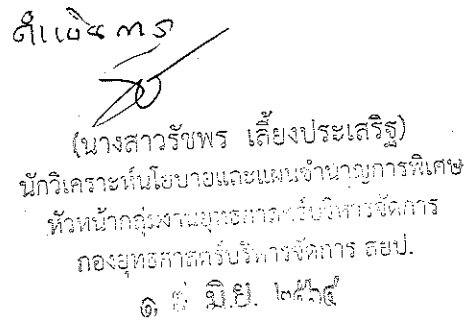 ดำเนินการ
(นางสาวรัชพร เลี้ยงประเสริฐ)
นักวิเคราะห์นโยบายและแผนชำนาญการพิเศษ
หัวหน้ากลุ่มงานยุทธศาสตร์บริหารจัดการ
กองยุทธศาสตร์บริหารจัดการ สยป.
มิ.ย. ๒๕๖๔